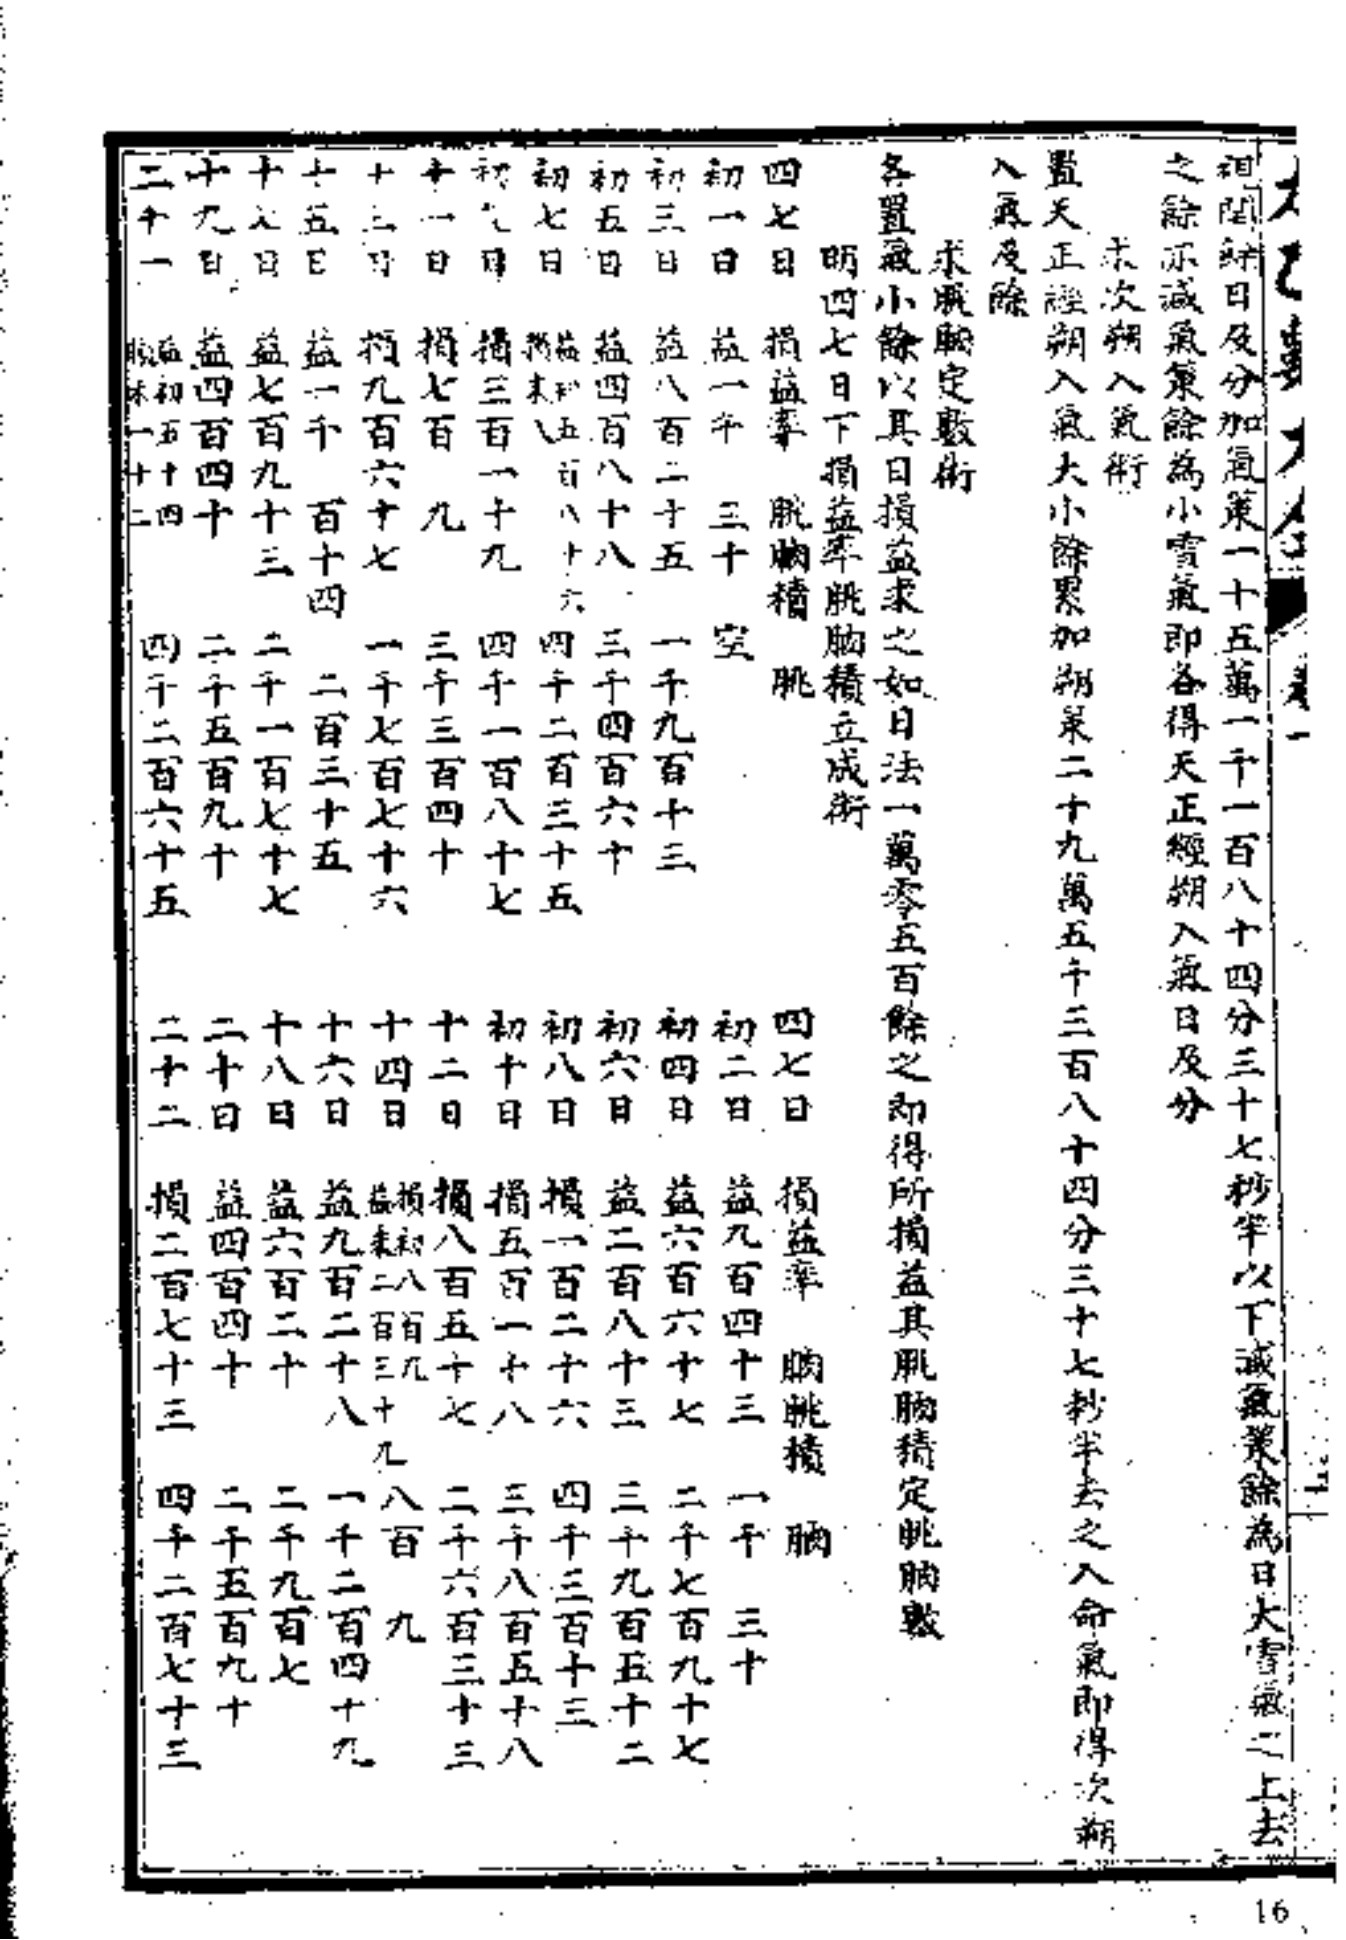 日及分加氣策一十五萬一千一百八十四分三十七秒半以下減氣策餘為日大雪氣之上去
之餘亦減氣策餘為小雪氣即各得天正經朔入氣日及分
求次朔入氣術
置天正經朔入氣大小餘累加朔策二十九萬五千三百八十四分三十七秒半去之入命氣即得次朔
入氣及餘
求朓朒定數術
各置氣小餘以其日損益求之如日法一萬零五百餘之即得所損益其朓朒積定朓朒數
明四七日下損益率朓朒積立成術
四七日 損益率 朓朒積 朓 四七日 損益率 朒朓積 朒
初一日 益一千 三十 空 初二日 益九百四十三 一千 三十
初三日 益八百二十五 一千九百十三 初四日 益六百六十七 二千七百九十七
初五日 益四百八十八 三千四百六十 初六日 益二百八十三 三千九百五十二
初七日 益初五百八十六 損末八 四千二百三十五 初八日 損一百二十六 四千三百十三
初九日 損三百一十九 四千一百八十七 初十日 損五百一十八 三千八百五十八
十一日 損七百 九 三千三百四十 十二日 損八百五十七 二千六百三十三
十三日 損九百六十七 一千七百七十六 十四日 損初八百九 益末二百三十九 八百 九
十五日 益一千 百十四 二百三十五 十六日 益九百二十八 一千二百四十九
十七日 益七百九十三 二千一百七十七 十八日 益六百二十 二千九百七
十九日 益四百四十 二千五百九十 二十日 益四百四十 二千五百九十
二十一 益初五十四 末一十二 四千二百六十五 二十二 損二百七十三 四千二百七十三
16